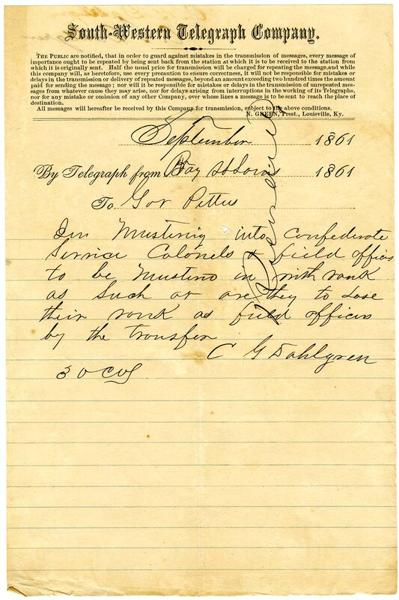 South-Western Telegraph Company.
THE PUBLIC are notified, that in order to guard against mistakes in the transmission of messages, every message of
importance ought to be repeated by being sent back from the station at which it is to be received to the station from
which it is originally sent. Half the usual price for transmission will be charged for repeating the message, and while
this company will, as heretofore, use every precaution to ensure correctness, it will not be responsible for mistakes or
delays in the transmission or delivery of repeated messages, beyond an amount exceeding two hundred times the amount
paid for sending the message; nor will it be responsible for mistakes or delays in the transmission of unrepeated messages
from whatever cause they may arise, nor for delays arising from interruptions in the working of its Telegraphs,
nor for any mistake or omission of any other Company, over whose lines a message is to be sent to reach the place of
destination.
All messages will hereafter be received by this Company for transmission, subject to the above conditions.
N. GREEN, Prest., Louisville, Ky.
September 1861
By Telegraph from Bay St Louis 1861
To Gov Pettus
In Mustering into Confederate
Service Colonels & field officers
to be Mustered in with rank
as Such or are they to Lose
their rank as field officers
by the transfer
C G Dahlgren
30